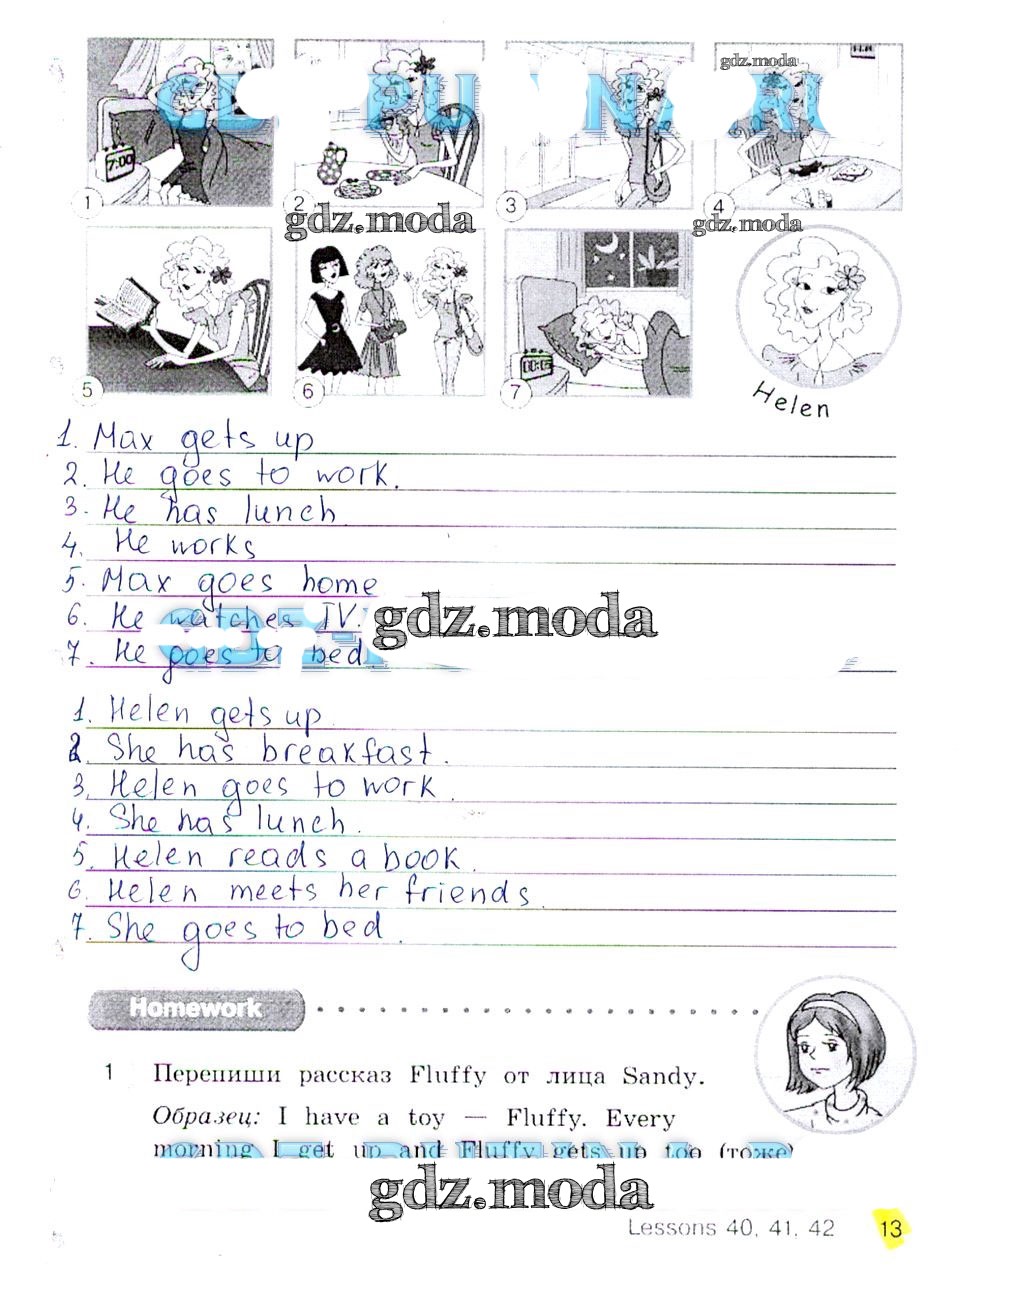 gdz.moda
7:00
1
2
3
4
gdz.moda
gdz.moda
5
6
7
Helen
1. Max gets up
2. He goes to work.
3. He has lunch
4. He works
5. Max goes home
6. He watches TV.
gdz.moda
7. He goes to bed.
1. Helen gets up.
2. She has breakfast.
3. Helen goes to work.
4. She has lunch.
5. Helen reads a book.
6. Helen meets her friends.
7. She goes to bed.
Homework
1 Перепиши рассказ Fluffy от лица Sandy.
Образец: I have a toy — Fluffy. Every
morning I get up and Fluffy gets up too (тоже)
gdz.moda
Lessons 40, 41, 42 13